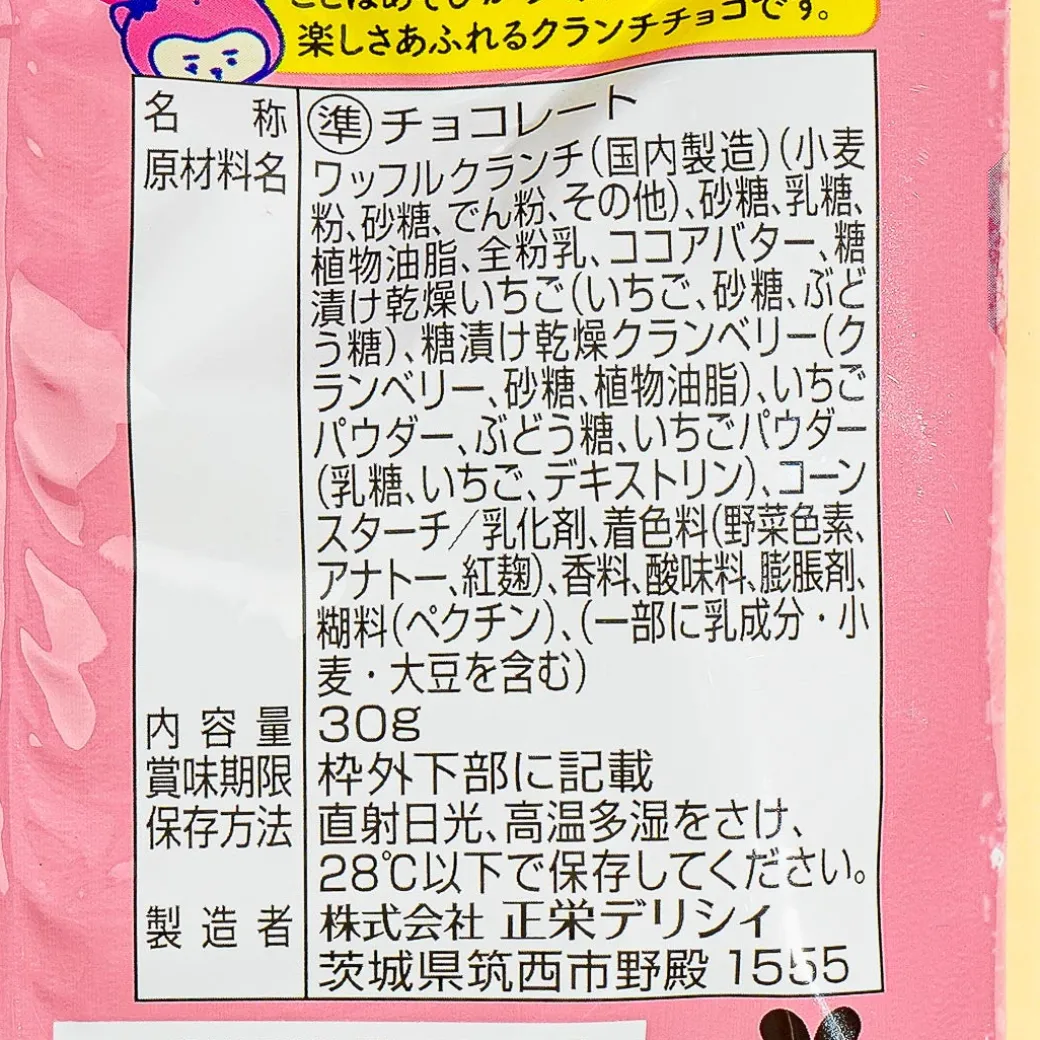 楽しさあふれるクランチチョコです。
名称 準チョコレート
原材料名 ワッフルクランチ(国内製造)(小麦
粉、砂糖、でん粉、その他)、砂糖、乳糖、
植物油脂、全粉乳、ココアバター、糖
漬け乾燥いちご(いちご、砂糖、ぶど
う糖)、糖漬け乾燥クランベリー(ク
ランベリー、砂糖、植物油脂)、いちご
パウダー、ぶどう糖、いちごパウダー
(乳糖、いちご、デキストリン)、コーン
スターチ/乳化剤、着色料(野菜色素、
アナトー、紅麹)、香料、酸味料、膨脹剤、
糊料(ペクチン)、(一部に乳成分・小
麦・大豆を含む)
内容量 30g
賞味期限 枠外下部に記載
保存方法 直射日光、高温多湿をさけ、
28℃以下で保存してください。
製造者 株式会社 正栄デリシィ
茨城県筑西市野殿1555